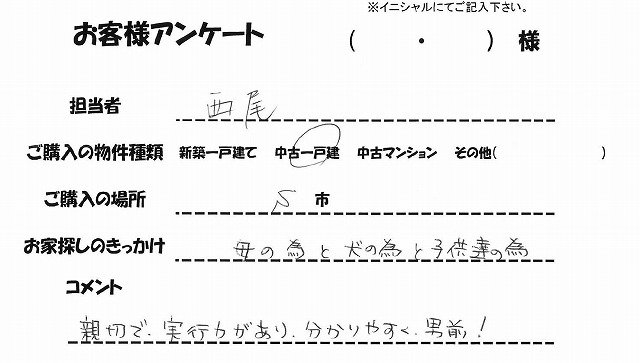 ※イニシャルにてご記入下さい。
お客様アンケート ( ・ ) 様
担当者 西尾
ご購入の物件種類 新築一戸建て 中古一戸建 中古マンション その他( )
ご購入の場所 S 市
お家探しのきっかけ 母の為と犬の為と子供達の為
コメント
親切で、実行力があり、分かりやすく、男前!